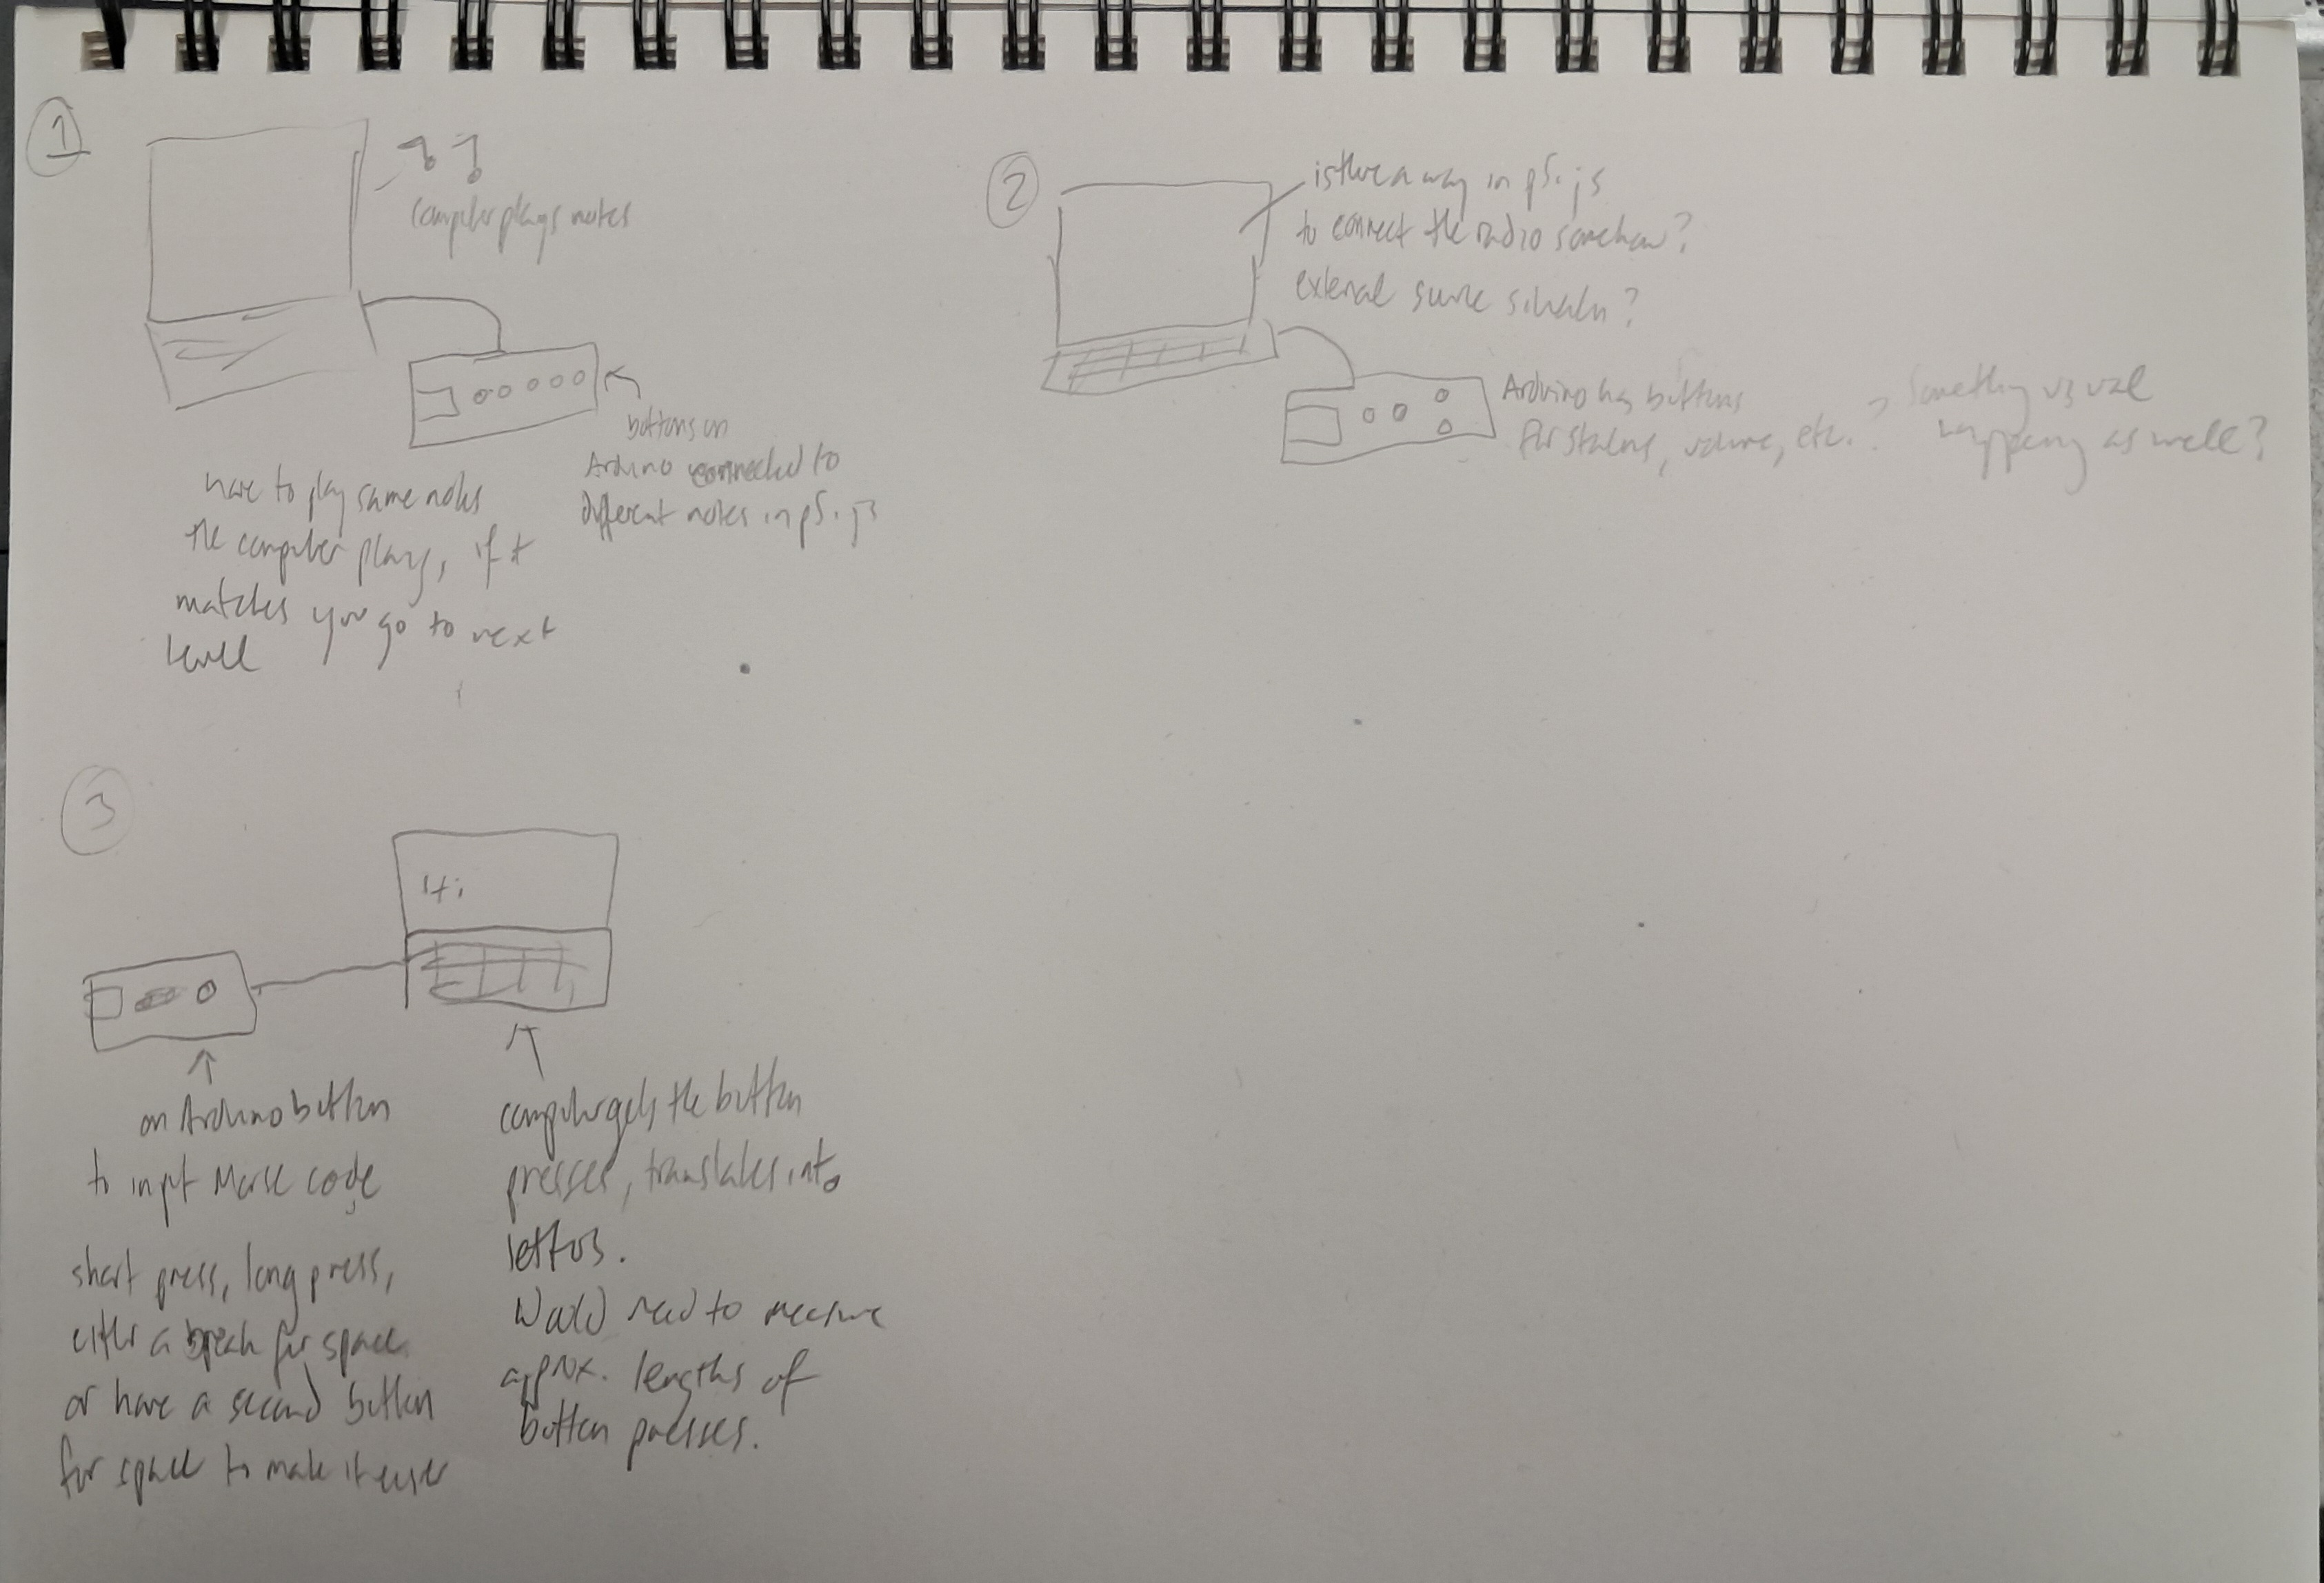 1
computer plays notes
buttons on
Arduino connected to
different notes in p5.js
have to play same notes
the computer plays, if it
matches you go to next
level
2
is there a way in p5.js
to connect the radio somehow?
external
Arduino has buttons
for stations, volume, etc.
Something visual
happening as well?
3
Hi
on Arduino button
to input Morse code
short press, long press,
either a break for space
or have a second button
for space to make it easier
computer gets the button
presses, translates into
letters.
Would need to measure
approx. lengths of
button presses.